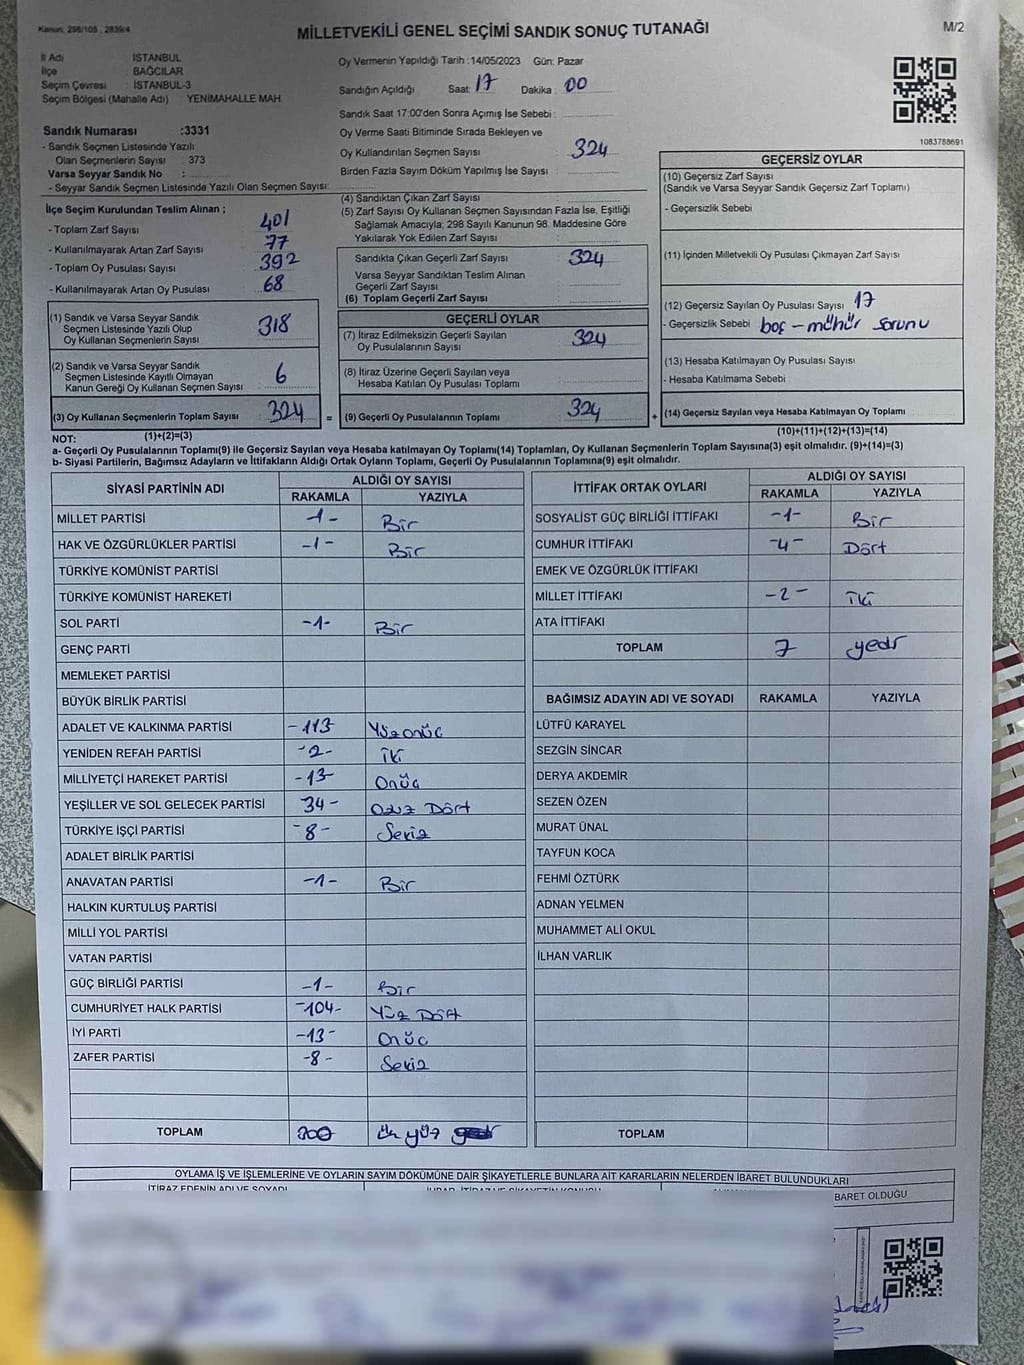 Kanun: 298/105 , 2839/4
MİLLETVEKİLİ GENEL SEÇİMİ SANDIK SONUÇ TUTANAĞI
M/2
İl Adı İSTANBUL
İlçe BAĞCILAR
Seçim Çevresi İSTANBUL-3
Seçim Bölgesi (Mahalle Adı) YENİMAHALLE MAH.
Sandık Numarası :3331
- Sandık Seçmen Listesinde Yazılı
Olan Seçmenlerin Sayısı : 373
Varsa Seyyar Sandık No :
- Seyyar Sandık Seçmen Listesinde Yazılı Olan Seçmen Sayısı:
Oy Vermenin Yapıldığı Tarih :14/05/2023 Gün: Pazar
Sandığın Açıldığı Saat: 17 Dakika : 00
Sandık Saat 17:00'den Sonra Açımış İse Sebebi :
Oy Verme Saati Bitiminde Sırada Bekleyen ve
Oy Kullandırılan Seçmen Sayısı 324
Birden Fazla Sayım Döküm Yapılmış İse Sayısı :
1083788691
İlçe Seçim Kurulundan Teslim Alınan ;
- Toplam Zarf Sayısı 401
- Kullanılmayarak Artan Zarf Sayısı 77
- Toplam Oy Pusulası Sayısı 392
- Kullanılmayarak Artan Oy Pusulası 68
(1) Sandık ve Varsa Seyyar Sandık
Seçmen Listesinde Yazılı Olup
Oy Kullanan Seçmenlerin Sayısı 318
(2) Sandık ve Varsa Seyyar Sandık
Seçmen Listesinde Kayıtlı Olmayan
Kanun Gereği Oy Kullanan Seçmen Sayısı 6
(3) Oy Kullanan Seçmenlerin Toplam Sayısı 324 =
(1)+(2)=(3)
(4) Sandıktan Çıkan Zarf Sayısı :
(5) Zarf Sayısı Oy Kullanan Seçmen Sayısından Fazla İse, Eşitliği
Sağlamak Amacıyla; 298 Sayılı Kanunun 98. Maddesine Göre
Yakılarak Yok Edilen Zarf Sayısı :
Sandıkta Çıkan Geçerli Zarf Sayısı 324
Varsa Seyyar Sandıktan Teslim Alınan
Geçerli Zarf Sayısı :
(6) Toplam Geçerli Zarf Sayısı :
GEÇERLİ OYLAR
(7) İtiraz Edilmeksizin Geçerli Sayılan
Oy Pusulalarının Sayısı 324
(8) İtiraz Üzerine Geçerli Sayılan veya
Hesaba Katılan Oy Pusulası Toplamı
(9) Geçerli Oy Pusulalarının Toplamı 324 +
GEÇERSİZ OYLAR
(10) Geçersiz Zarf Sayısı
(Sandık ve Varsa Seyyar Sandık Geçersiz Zarf Toplamı)
- Geçersizlik Sebebi
(11) İçinden Milletvekili Oy Pusulası Çıkmayan Zarf Sayısı
(12) Geçersiz Sayılan Oy Pusulası Sayısı 17
- Geçersizlik Sebebi boş - mühür sorunu
(13) Hesaba Katılmayan Oy Pusulası Sayısı
- Hesaba Katılmama Sebebi
(14) Geçersiz Sayılan veya Hesaba Katılmayan Oy Toplamı
(10)+(11)+(12)+(13)=(14)
NOT:
a- Geçerli Oy Pusulalarının Toplamı(9) ile Geçersiz Sayılan veya Hesaba katılmayan Oy Toplamı(14) Toplamları, Oy Kullanan Seçmenlerin Toplam Sayısına(3) eşit olmalıdır. (9)+(14)=(3)
b- Siyasi Partilerin, Bağımsız Adayların ve İttifakların Aldığı Ortak Oyların Toplamı, Geçerli Oy Pusulalarının Toplamına(9) eşit olmalıdır.
SİYASİ PARTİNİN ADI ALDIĞI OY SAYISI
RAKAMLA YAZIYLA
MİLLET PARTİSİ -1- Bir
HAK VE ÖZGÜRLÜKLER PARTİSİ -1- Bir
TÜRKİYE KOMÜNİST PARTİSİ
TÜRKİYE KOMÜNİST HAREKETİ
SOL PARTİ -1- Bir
GENÇ PARTİ
MEMLEKET PARTİSİ
BÜYÜK BİRLİK PARTİSİ
ADALET VE KALKINMA PARTİSİ -113- Yüzonüç
YENİDEN REFAH PARTİSİ -2- İki
MİLLİYETÇİ HAREKET PARTİSİ -13- Onüç
YEŞİLLER VE SOL GELECEK PARTİSİ 34- Otuz Dört
TÜRKİYE İŞÇİ PARTİSİ -8- Sekiz
ADALET BİRLİK PARTİSİ
ANAVATAN PARTİSİ -1- Bir
HALKIN KURTULUŞ PARTİSİ
MİLLİ YOL PARTİSİ
VATAN PARTİSİ
GÜÇ BİRLİĞİ PARTİSİ -1- Bir
CUMHURİYET HALK PARTİSİ -104- Yüz Dört
İYİ PARTİ -13- Onüç
ZAFER PARTİSİ -8- Sekiz
TOPLAM 300 üç yüz
İTTİFAK ORTAK OYLARI ALDIĞI OY SAYISI
RAKAMLA YAZIYLA
SOSYALİST GÜÇ BİRLİĞİ İTTİFAKI -1- Bir
CUMHUR İTTİFAKI -4- Dört
EMEK VE ÖZGÜRLÜK İTTİFAKI
MİLLET İTTİFAKI -2- İki
ATA İTTİFAKI
TOPLAM 7 yedi
BAĞIMSIZ ADAYIN ADI VE SOYADI RAKAMLA YAZIYLA
LÜTFÜ KARAYEL
SEZGİN SİNCAR
DERYA AKDEMİR
SEZEN ÖZEN
MURAT ÜNAL
TAYFUN KOCA
FEHMİ ÖZTÜRK
ADNAN YELMEN
MUHAMMET ALİ OKUL
İLHAN VARLIK
TOPLAM
OYLAMA İŞ VE İŞLEMLERİNE VE OYLARIN SAYIM DÖKÜMÜNE DAİR ŞİKAYETLERLE BUNLARA AİT KARARLARIN NELERDEN İBARET BULUNDUKLARI
İTİRAZ EDENİN ADI VE SOYADI
BARET OLDUĞU